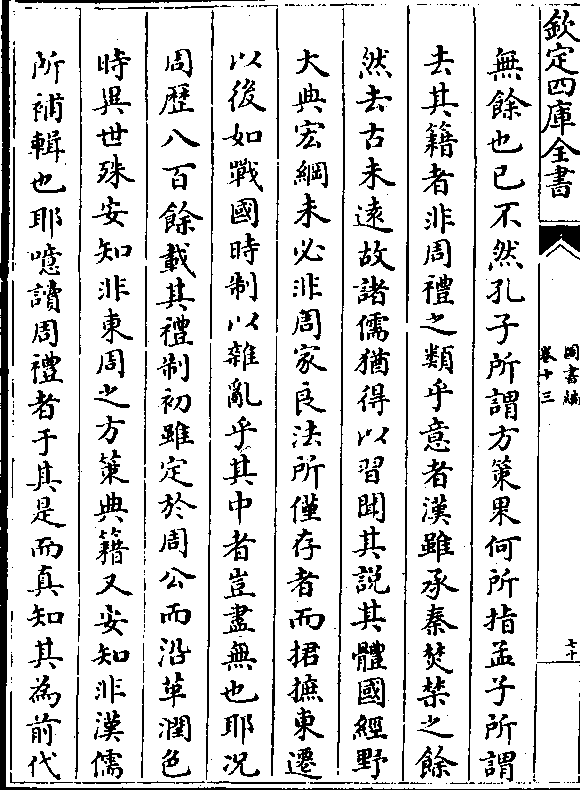 欽定四庫全書
圖書編
卷十三
七十
無餘也已不然孔子所謂方策果何所指孟子所謂
去其籍者非周禮之類乎意者漢雖承秦焚禁之餘
然去古未遠故諸儒猶得以習聞其說其體國經野
大典宏綱未必非周家良法所僅存者而捃摭東遷
以後如戰國時制以雜亂乎其中者豈盡無也耶况
周歷八百餘載其禮制初雖定於周公而沿革潤色
時異世殊安知非東周之方策典籍又安知非漢儒
所補輯也耶噫讀周禮者于其是而真知其為前代